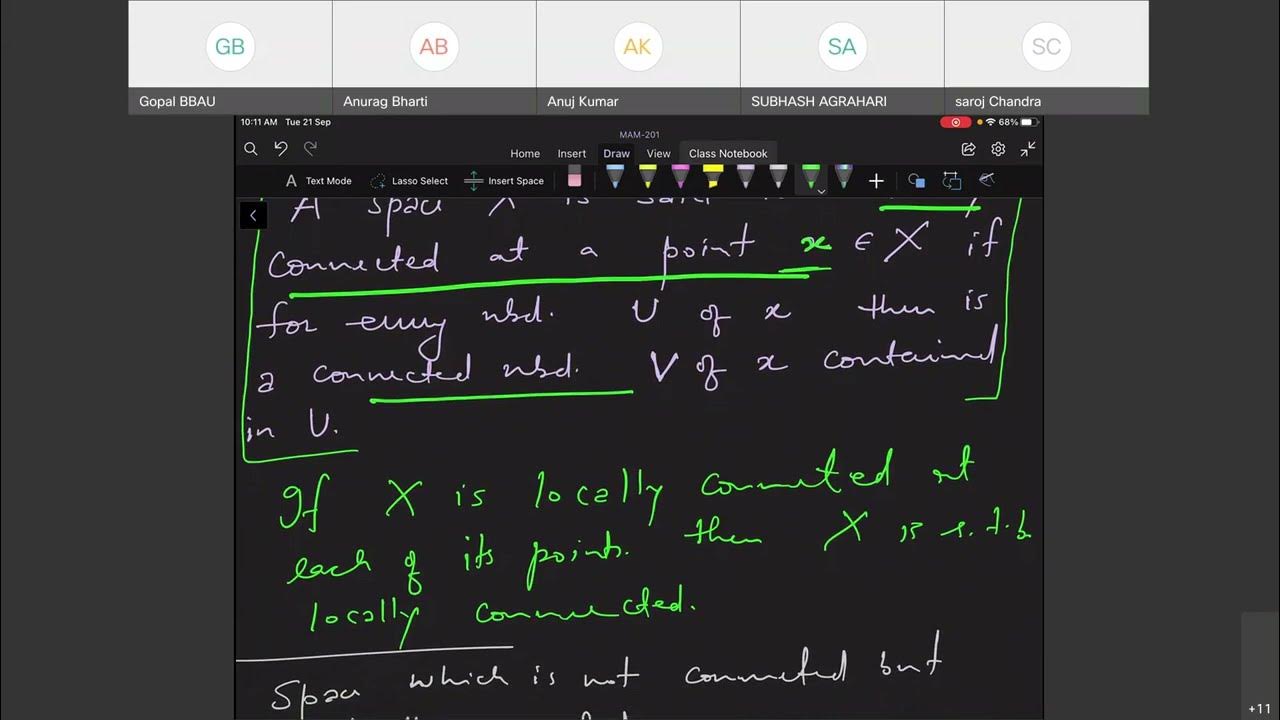 GB AB AK SA SC
Gopal BBAU Anurag Bharti Anuj Kumar SUBHASH AGRAHARI saroj Chandra
10:11 AM Tue 21 Sep 68%
MAM-201
Home Insert Draw View Class Notebook
A Text Mode Lasso Select Insert Space
A space X is said
connected at a point x ∈ X if
for every nbd. U of x then is
a connected nbd. V of x contained
in U.
If X is locally connected at
each of its points. then X is s.t.b
locally connected.
Space which is not connected but
+11